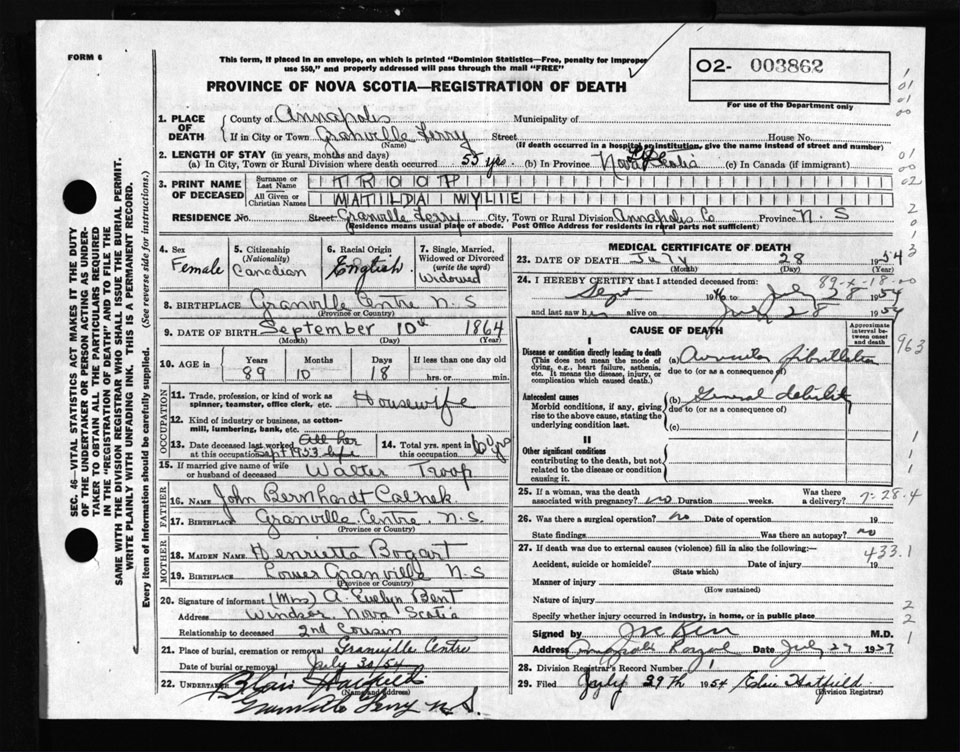 FORM 6
This form, if placed in an envelope, on which is printed "Dominion Statistics—Free, penalty for improper
use $50," and properly addressed will pass through the mail "FREE"
PROVINCE OF NOVA SCOTIA—REGISTRATION OF DEATH
02- 003862
For use of the Department only
1. PLACE OF DEATH
County of Annapolis Municipality of
If in City or Town Granville Ferry Street House No.
(Name) (If death occurred in a hospital or institution, give the name instead of street and number)
2. LENGTH OF STAY (in years, months and days)
(a) In City, Town or Rural Division where death occurred 55 yrs. (b) In Province Nova Scotia (c) In Canada (if immigrant)
3. PRINT NAME OF DECEASED
Surname or Last Name TROOP
All Given or Christian Names MATILDA WYLIE
RESIDENCE No. Street Granville Ferry City, Town or Rural Division Annapolis Co Province N. S
(Residence means usual place of abode. Post Office Address for residents in rural parts not sufficient)
4. Sex Female
5. Citizenship (Nationality) Canadian
6. Racial Origin English
7. Single, Married, Widowed or Divorced (write the word) Widowed
8. BIRTHPLACE Granville Centre N-S
(Province or Country)
9. DATE OF BIRTH September 10th 1864
(Month) (Day) (Year)
10. AGE in Years Months Days If less than one day old
89 10 18 hrs. or min.
OCCUPATION
11. Trade, profession, or kind of work as spinner, teamster, office clerk, etc. Housewife
12. Kind of industry or business, as cotton-mill, lumbering, bank, etc.
13. Date deceased last worked at this occupation Sept 1953 All her life
14. Total yrs. spent in this occupation
15. If married give name of wife or husband of deceased Walter Troop
FATHER
16. NAME John Bernhardt Calnek
17. BIRTHPLACE Granville Centre, N.S.
(Province or Country)
MOTHER
18. MAIDEN NAME Henrietta Bogart
19. BIRTHPLACE Lower Granville N-S
(Province or Country)
20. Signature of informant (Mrs) A. Evelyn Bent
Address Windsor, Nova Scotia
Relationship to deceased 2nd Cousin
21. Place of burial, cremation or removal Granville Centre
Date of burial or removal July 30/54
22. UNDERTAKER Blair Hatfield
(Name and Address)
Granville Ferry N.S.
MEDICAL CERTIFICATE OF DEATH
23. DATE OF DEATH July 28 1954
(Month) (Day) (Year)
24. I HEREBY CERTIFY that I attended deceased from: 89-x-18-00
Sept 19 to July 28 1954
and last saw her alive on July 28 1954
CAUSE OF DEATH
Approximate interval between onset and death
I
Disease or condition directly leading to death
(This does not mean the mode of dying, e.g., heart failure, asthenia, etc. It means the disease, injury, or complication which caused death.)
(a) Auricular Fibrillation
due to (or as a consequence of)
Antecedent causes
Morbid conditions, if any, giving rise to the above cause, stating the underlying condition last.
(b) General debility
due to (or as a consequence of)
(c)
II
Other significant conditions
contributing to the death, but not related to the disease or condition causing it.
25. If a woman, was the death associated with pregnancy? no Duration weeks. Was there a delivery?
7-28-4
26. Was there a surgical operation? no Date of operation 19
State findings Was there an autopsy? no
27. If death was due to external causes (violence) fill in also the following:— 433.1
Accident, suicide or homicide? Date of injury 19
(State which)
Manner of injury
(How sustained)
Nature of injury
Specify whether injury occurred in industry, in home, or in public place
Signed by M.D.
Address Annapolis Royal Date July 29 1957
28. Division Registrar's Record Number 1
29. Filed July 29th 1954 Elsie Hatfield
(Division Registrar)
963
SEC. 46—VITAL STATISTICS ACT MAKES IT THE DUTY
OF THE UNDERTAKER OR PERSON ACTING AS UNDER-
TAKER TO OBTAIN ALL THE PARTICULARS REQUIRED
IN THE "REGISTRATION OF DEATH" AND TO FILE THE
SAME WITH THE DIVISION REGISTRAR WHO SHALL ISSUE THE BURIAL PERMIT.
WRITE PLAINLY WITH UNFADING INK. THIS IS A PERMANENT RECORD.
Every item of Information should be carefully supplied. (See reverse side for instructions.)